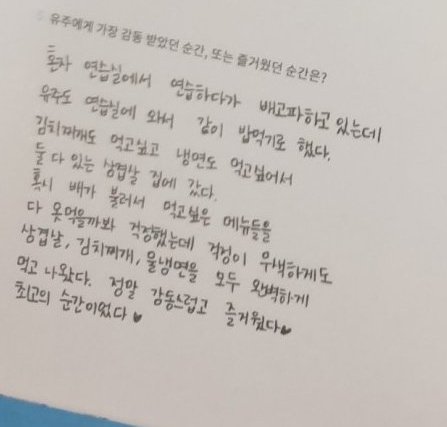 유주에게 가장 감동 받았던 순간, 또는 즐거웠던 순간은?
혼자 연습실에서 연습하다가 배고파하고 있는데
유주도 연습실에 와서 같이 밥먹기로 했다.
김치찌개도 먹고싶고 냉면도 먹고싶어서
둘 다 있는 삼겹살 집에 갔다.
혹시 배가 불러서 먹고싶은 메뉴들을
다 못먹을까봐 걱정했는데 걱정이 무색하게도
삼겹살, 김치찌개, 물냉면을 모두 완벽하게
먹고 나왔다. 정말 감동스럽고 즐거웠다♥
최고의 순간이었다♥